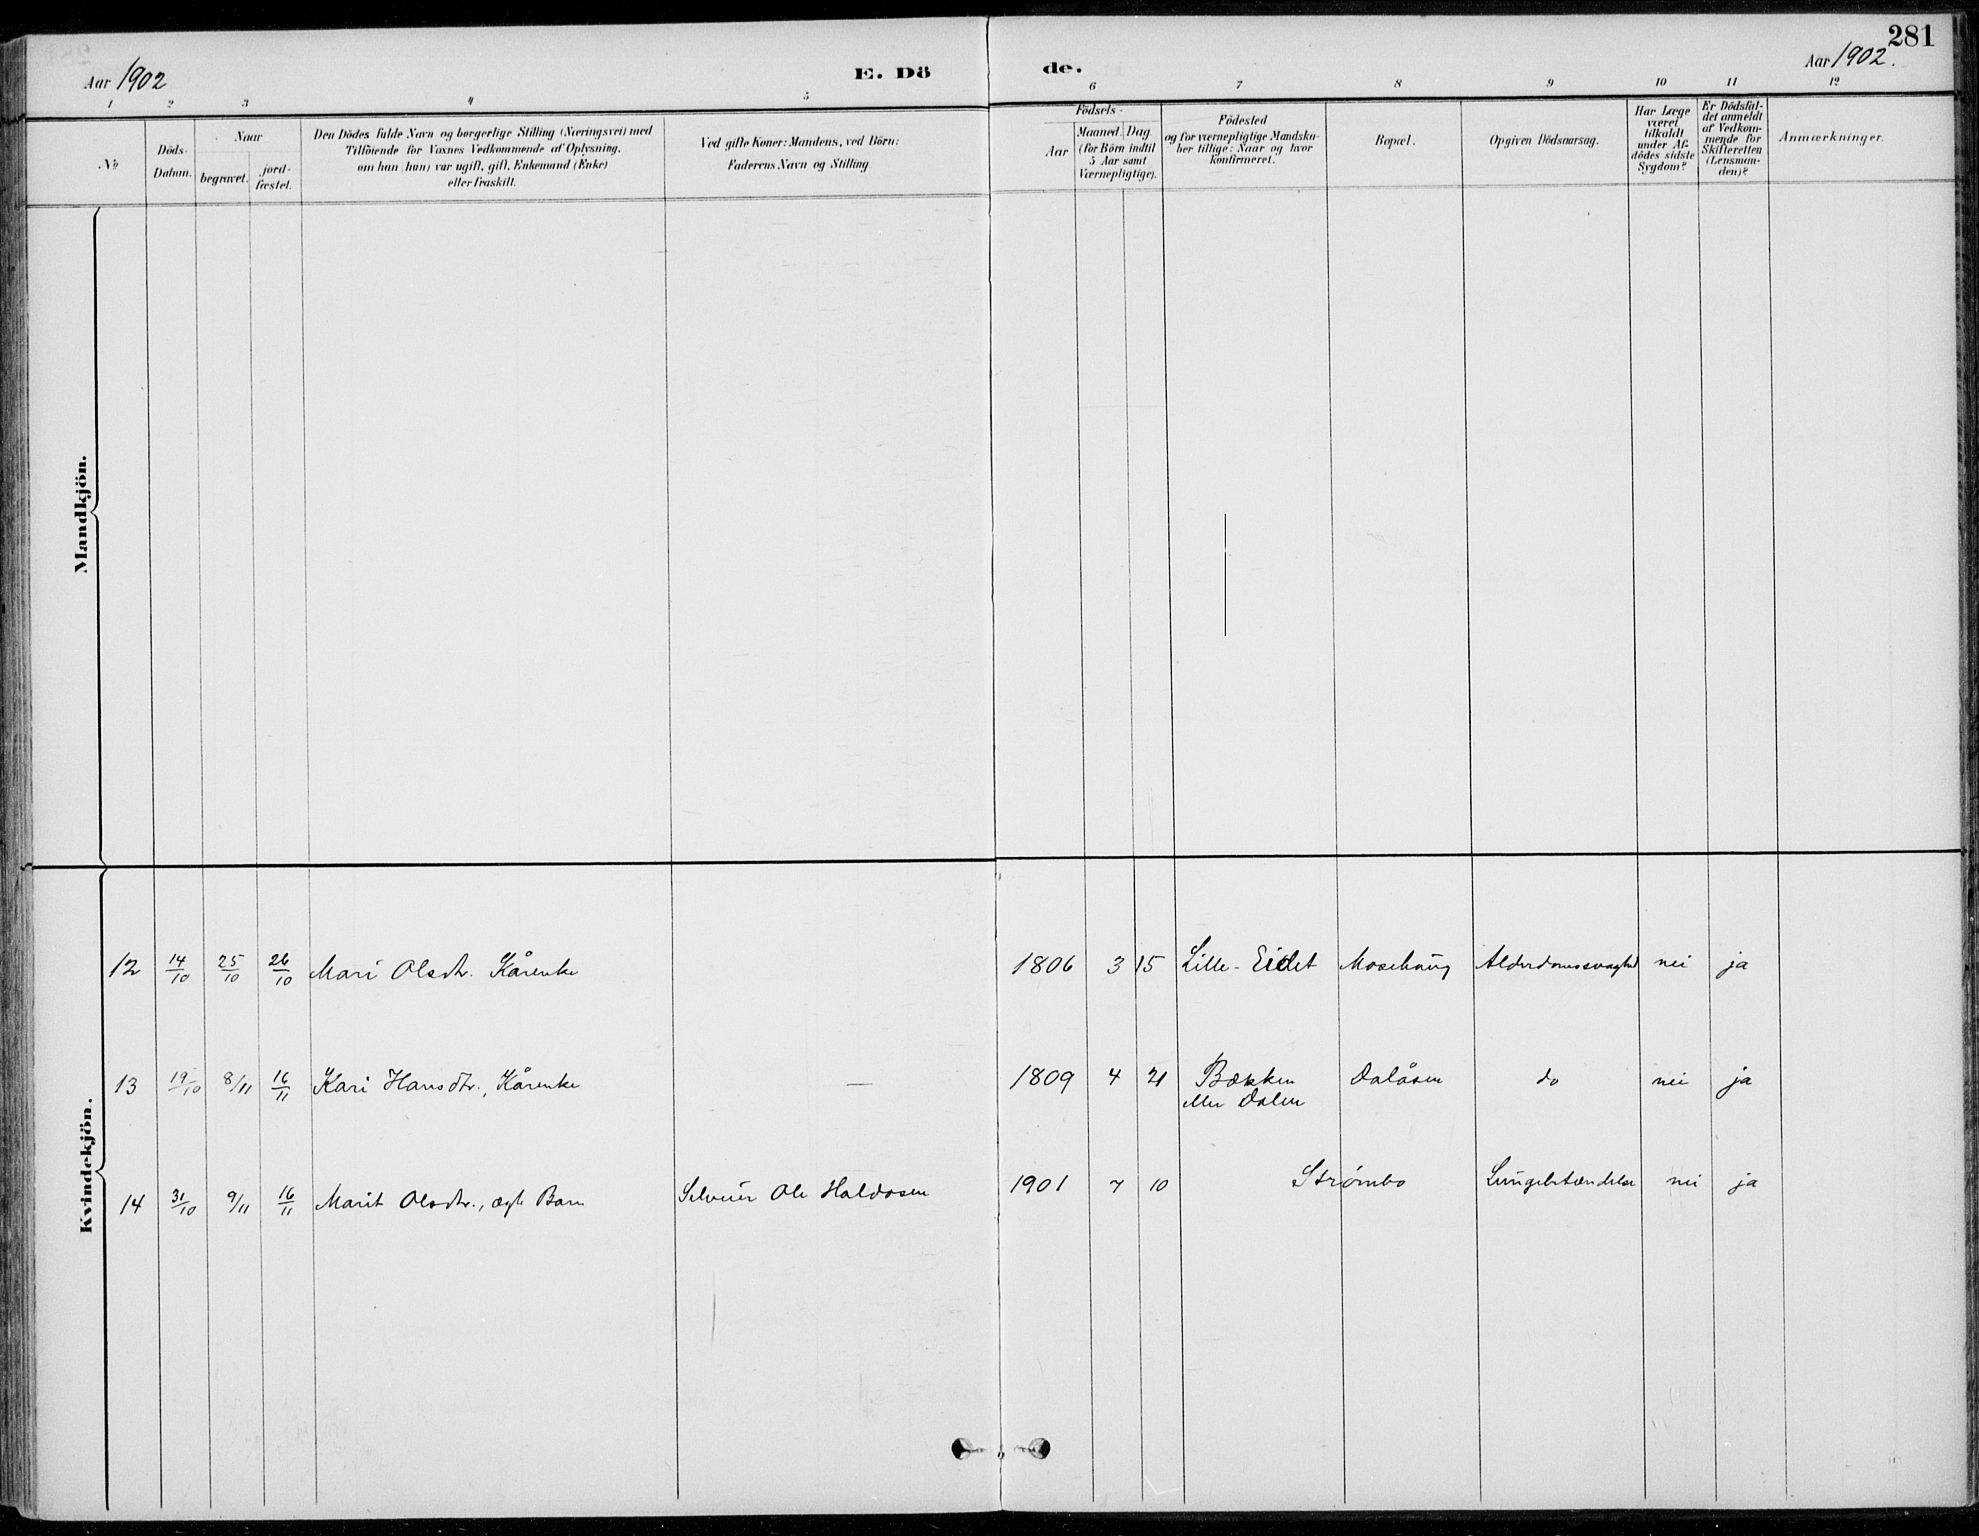 281
Aar 1902
E. Dö
de.
Aar 1902.
1 2 3 4 5 6 7 8 9 10 11 12
No
Döds-
Datum.
Naar
begravet.
jord-
fæstet.
Den Dödes fulde Navn og borgerlige Stilling (Næringsvei) med
Tilföiende for Voxnes Vedkommende af Oplysning,
om han (hun) var ugift, gift, Enkemand (Enke)
eller fraskilt.
Ved gifte Koner: Mandens, ved Börn:
Faderens Navn og Stilling
Födsels-
Aar
Maaned. Dag
(for Börn indtil
5 Aar samt
Værnepligtige).
Födested
og for værnepligtige Mandska-
ber tillige: Naar og hvor
konfirmeret.
Bopæl.
Opgiven Dödsaarsag.
Har Læge
været
tilkaldt
under Af-
dödes sidste
Sygdom?
Er Dödsfal-
det anmeldt
af Vedkom-
mende for
Skifteretten
(Lensman-
den)?
Anmærkninger.
Mandkjön.
Kvindekjön.
12 14/10 25/10 26/10 Mari Olsdtr. Kårenke 1806 3 15 Lille-Eidet Mosehaug Alderdomssvaghed nei ja
13 19/10 8/11 16/11 Kari Hansdtr., Kårenke — 1809 4 21 Bækken Dalåsen do nei ja
eller Dalen
14 31/10 9/11 16/11 Marit Olsdtr., ægte Barn Selveier Ole Haldosen 1901 7 10 Strømbo Lungebetændelse nei ja